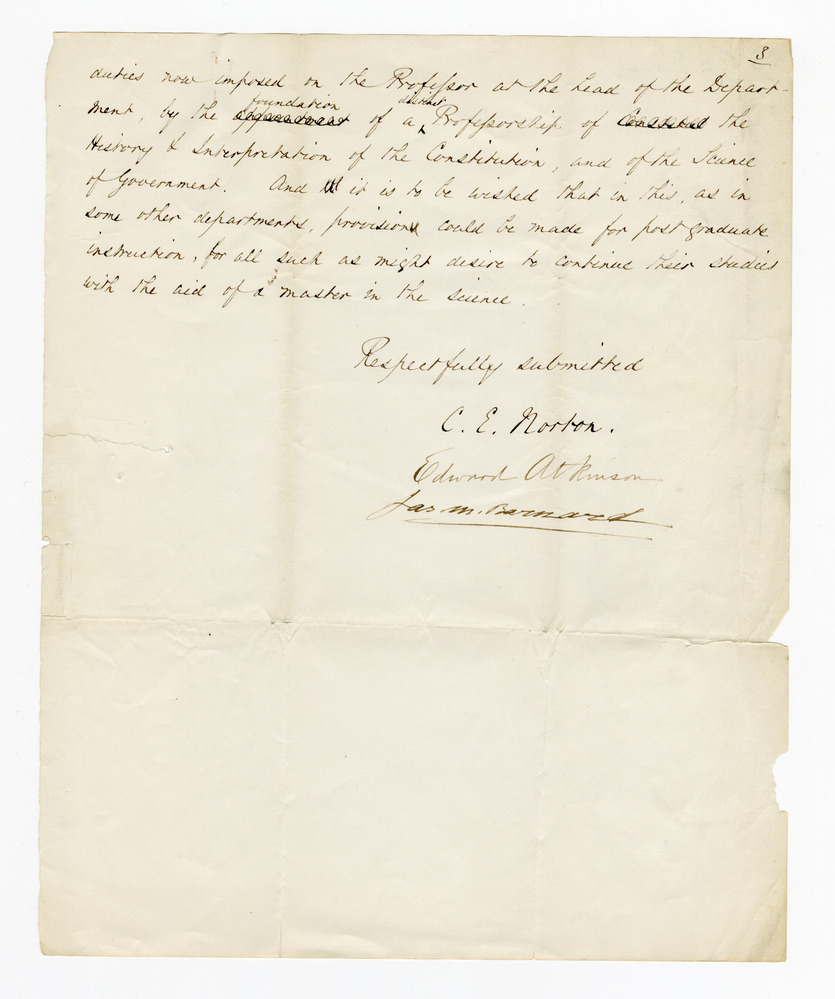 3
duties now imposed on the Professor at the head of the Depart-
ment, by the foundation of a distinct Professorship of the
History & Interpretation of the Constitution, and of the Science
of Government. And it is to be wished that in this, as in
some other departments, provision could be made for post graduate
instruction, for all such as might desire to continue their studies
with the aid of a master in the science.
Respectfully submitted
C. E. Norton.
Edward Atkinson
Jas. M. Barnard